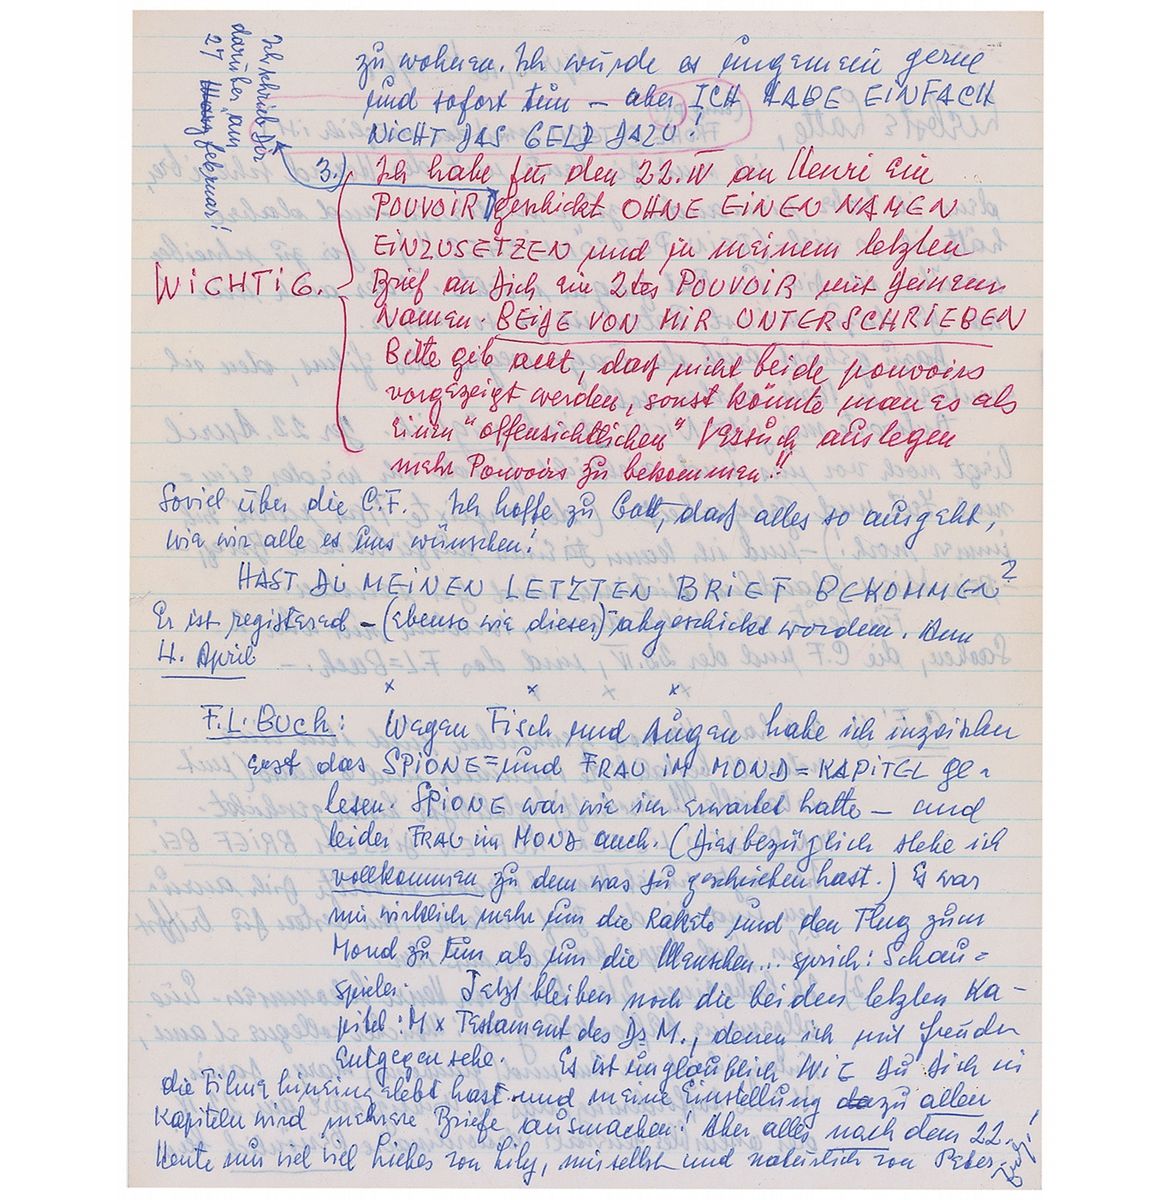 Ich schrieb Dir
darüber am
27 Februar!
zu wohnen. Ich würde es ungemein gerne
und sofort tun – aber ICH HABE EINFACH
NICHT DAS GELD DAZU!
3.) Ich habe für den 22.IV an Henri ein
POUVOIR geschickt OHNE EINEN NAMEN
EINZUSETZEN und in meinem letzten
WICHTIG. Brief an Dich ein 2tes POUVOIR mit Deinem
Namen. BEIDE VON MIR UNTERSCHRIEBEN
Bitte gib acht, daß nicht beide pouvoirs
vorgezeigt werden, sonst könnte man es als
einen "offensichtlichen" Versuch auslegen
mehr Pouvoirs zu bekommen!!
Soviel über die C.F. Ich hoffe zu Gott, daß alles so ausgeht,
wie wir alle es uns wünschen!
HAST DU MEINEN LETZTEN BRIEF BEKOMMEN?
Er ist registered – (ebenso wie dieser) abgeschickt worden. Am
4. April
x x x
F.L. BUCH: Wegen Fisch und Augen habe ich inzwischen
erst das SPIONE= und FRAU IM MOND=KAPITEL ge-
lesen. SPIONE war wie ich erwartet hatte – und
leider FRAU im MOND auch. (Diesbezüglich stehe ich
vollkommen zu dem was Du geschrieben hast.) Es war
mir wirklich mehr um die Rakete und den Flug zum
Mond zu tun als um die Menschen... sprich: Schau=
spieler. Jetzt bleiben noch die beiden letzten Ka-
pitel: M x Testament des Dr M., denen ich mit Freuden
entgegensehe. Es ist unglaublich WIE Du Dich in
die Filme hineingelebt hast und meine Einstellung zu allen
Kapiteln wird mehrere Briefe ausmachen! Aber alles nach dem 22.!
Heute nur viel viel Liebes von Lily, mir selbst und natürlich von Peter.